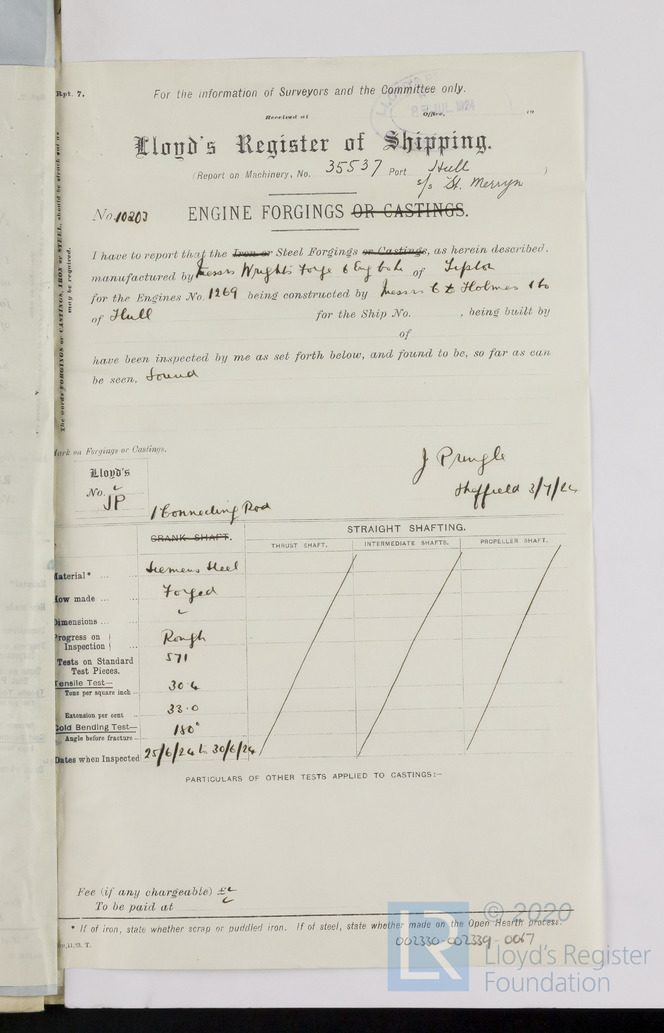 Rpt. 7.
For the information of Surveyors and the Committee only.
Received at Office, 19
Lloyd's Register of Shipping.
(Report on Machinery, No. 35537 Port Hull )
s/s St. Merryn
No. 10203 ENGINE FORGINGS OR CASTINGS.
I have to report that the Iron or Steel Forgings or Castings, as herein described,
manufactured by Messrs Wrights Forge & Eng Co Ld of Tipton
for the Engines No. 1269 being constructed by Messrs C D Holmes & Co
of Hull for the Ship No. , being built by
of
have been inspected by me as set forth below, and found to be, so far as can
be seen, Sound
The words FORGINGS or CASTINGS, IRON or STEEL, should be struck out as
may be required.
Mark on Forgings or Castings.
Lloyd's
No.
JP
J Pringle
Sheffield 3/7/24
1 Connecting Rod
CRANK SHAFT.
STRAIGHT SHAFTING.
THRUST SHAFT. INTERMEDIATE SHAFTS. PROPELLER SHAFT.
Material* ... Siemens Steel
How made ... Forged
Dimensions ...
Progress on Inspection ... Rough
Tests on Standard Test Pieces. 571
Tensile Test—
Tons per square inch 30.4
Extension per cent 33.0
Cold Bending Test—
Angle before fracture 180°
Dates when Inspected 25/6/24 to 30/6/24
PARTICULARS OF OTHER TESTS APPLIED TO CASTINGS:—
Fee (if any chargeable) £
To be paid at
* If of iron, state whether scrap or puddled iron. If of steel, state whether made on the Open Hearth process.
002330-002339-0067
LR © 2020
Lloyd's Register
Foundation